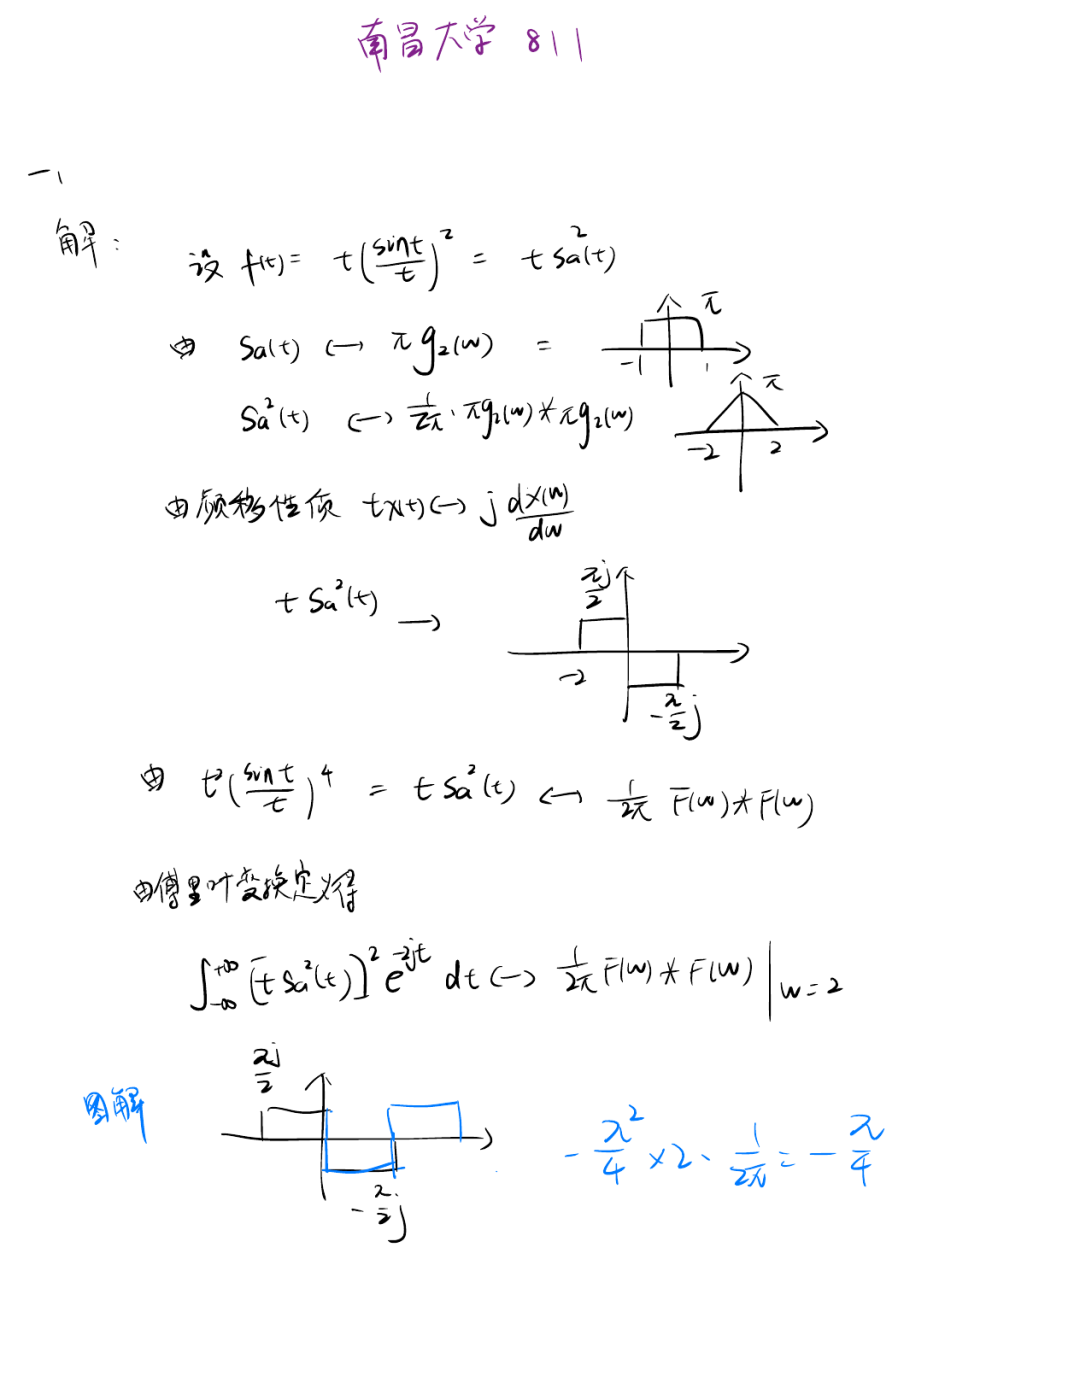 南昌大学 811
一、
解：
设 f(t)= t(sint/t)² = t Sa²(t)
由 Sa(t) ↔ π g₂(w) =
π
-1 1
Sa²(t) ↔ 1/2π · πg₂(w) * πg₂(w)
π
-2 2
由频移性质 tx(t) ↔ j dX(w)/dw
t Sa²(t) →
πj/2
-2
-π/2 j
由 t²(sint/t)⁴ = t Sa²(t) ↔ 1/2π F(w) * F(w)
由傅里叶变换定义得
∫₋∞⁺∞ [t Sa²(t)]² e^-2jt dt ↔ 1/2π F(w) * F(w) | w=2
图解
πj/2
-π/2 j
-π²/4 ×2· 1/2π = -π/4